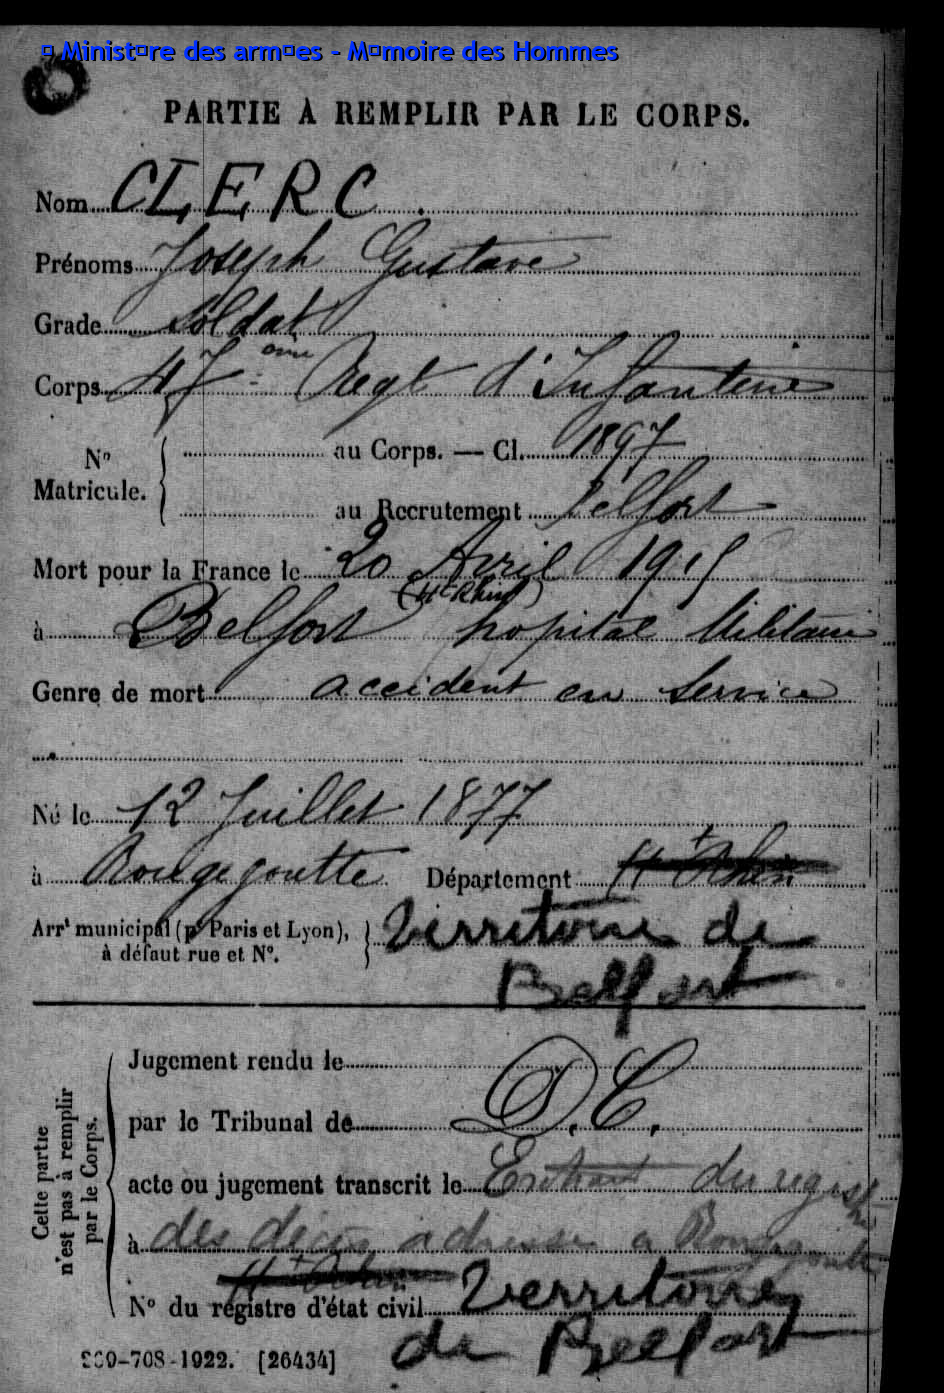 © Ministère des armées - Mémoire des Hommes
PARTIE À REMPLIR PAR LE CORPS.
Nom CLERC.
Prénoms Joseph Gustave
Grade Soldat
Corps 47ème Regt d'Infanterie
Nº Matricule. { au Corps. — Cl. 1897
au Recrutement Belfort
Mort pour la France le 20 Avril 1915
(Ht Rhin)
à Belfort hopital Militaire
Genre de mort accident en service
Né le 12 Juillet 1877
à Rougegoutte Département Ht Rhin
Arrt municipal (pr Paris et Lyon), } Territoire de
à défaut rue et Nº.
Belfort
Cette partie n'est pas à remplir par le Corps.
Jugement rendu le
par le Tribunal de D.C.
acte ou jugement transcrit le Extrait du registre
à des décès adressé a Rougegoutte
Ht Rhin
Nº du registre d'état civil Territoire
de Belfort
-708-1922. [26434]